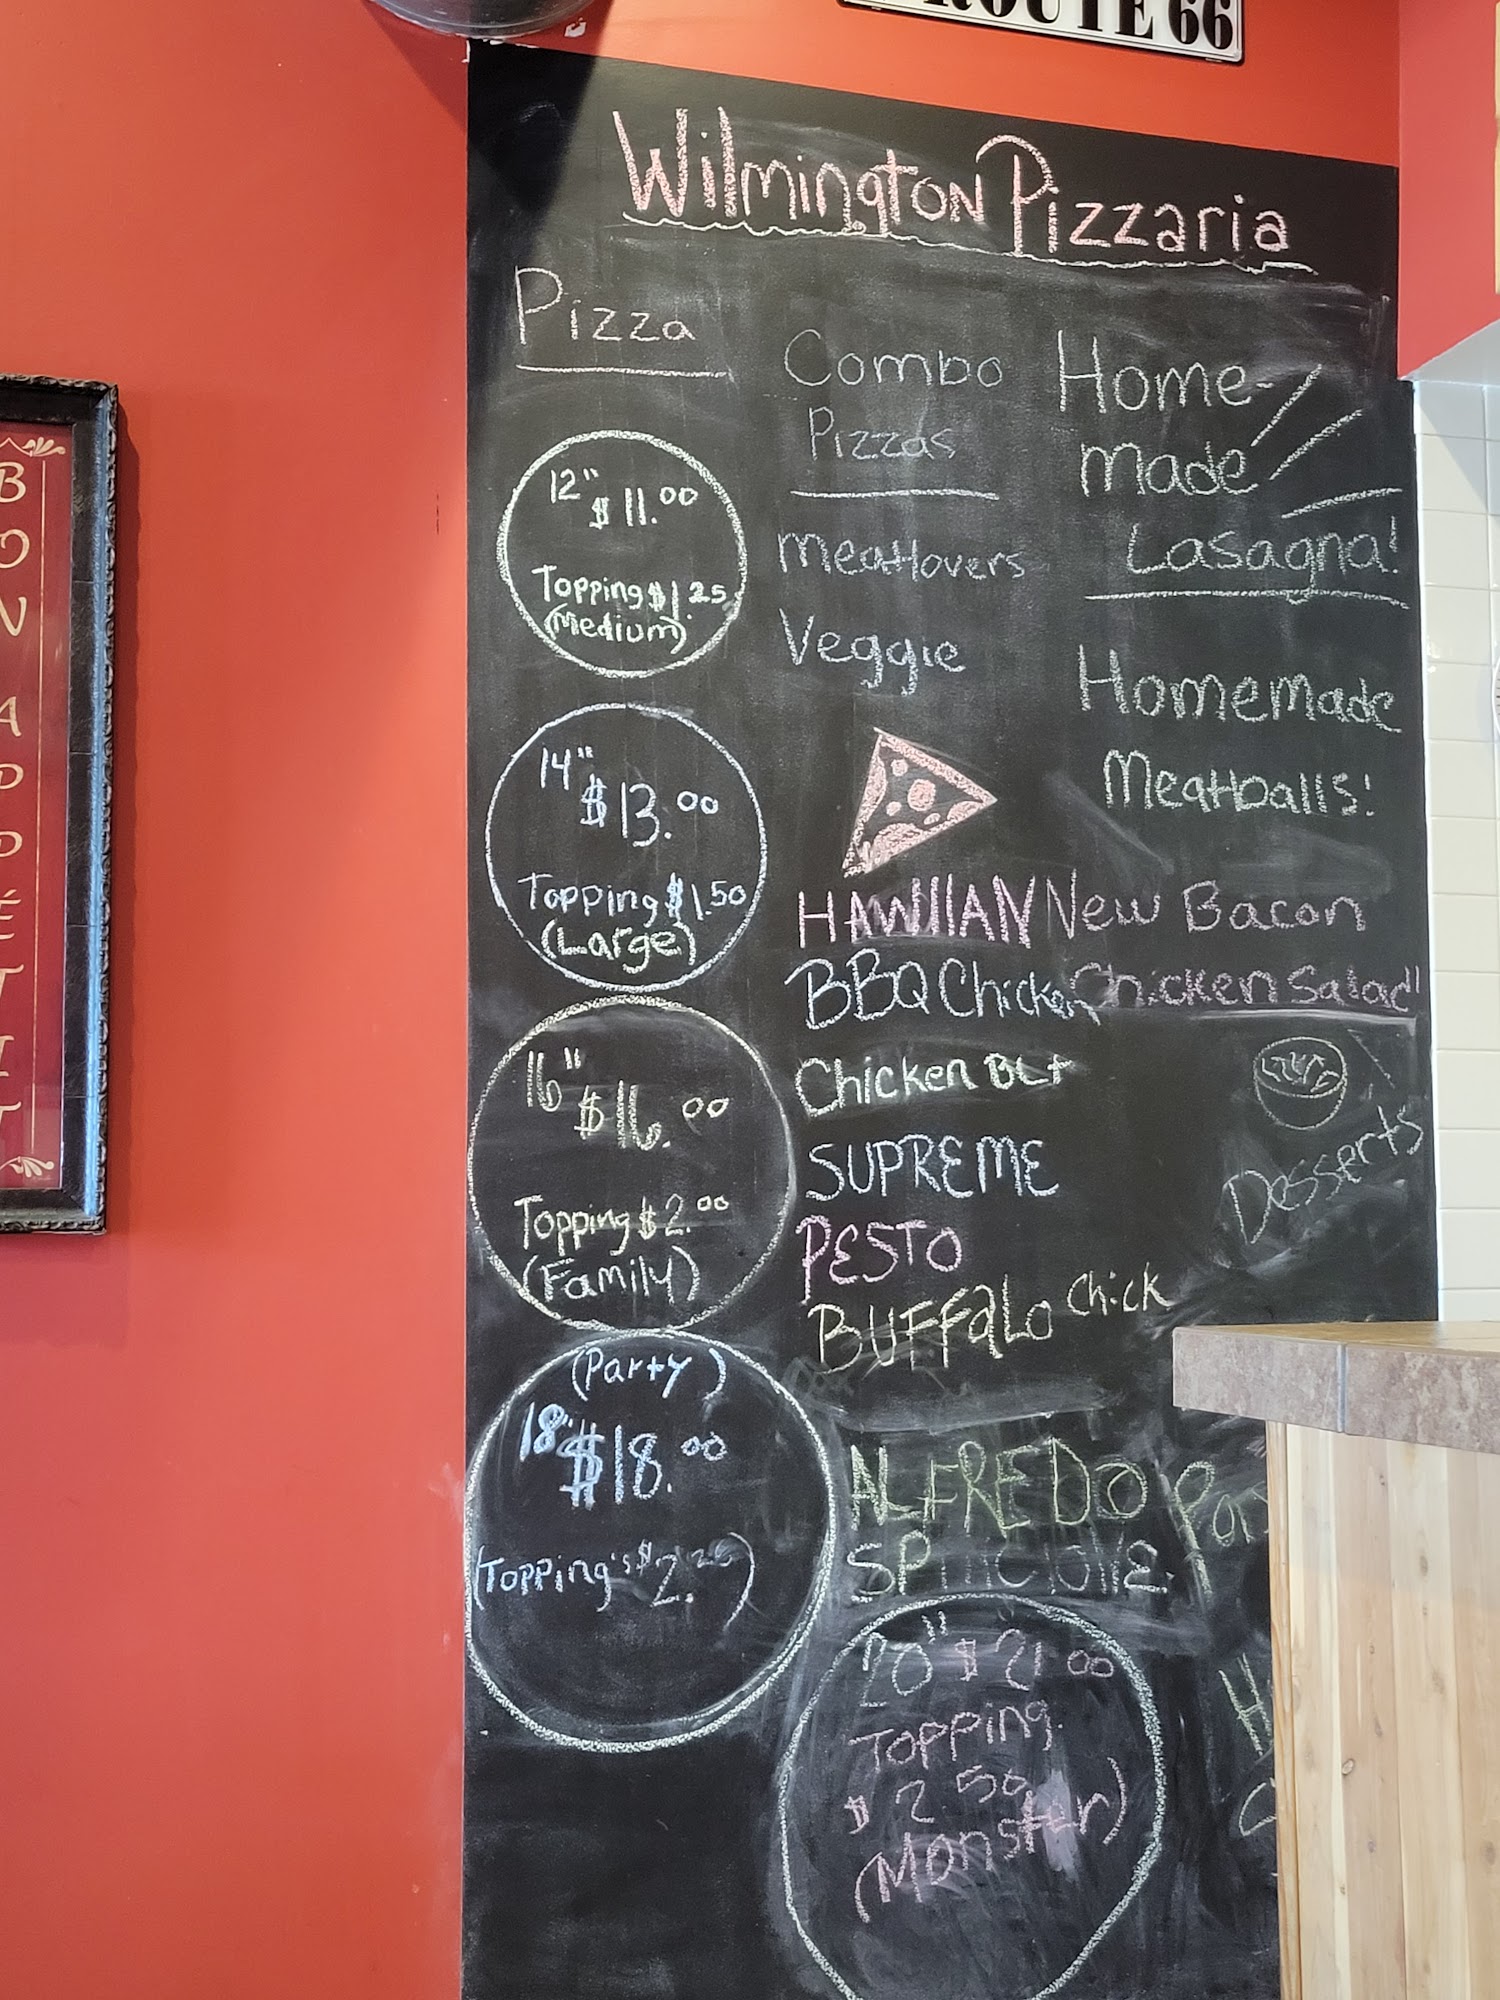 ROUTE 66
Wilmington Pizzaria
Pizza
12" $11.00
Topping $1.25
(Medium)
14" $13.00
Topping $1.50
(Large)
16" $16.00
Topping $2.00
(Family)
(Party)
18" $18.00
(Topping's $2.
Combo
Pizzas
Meatlovers
Veggie
HAWIIAN
BBQ Chicken
Chicken BLt
SUPREME
PESTO
BUFFalo Chick
ALFREDO
20" $21.00
Topping
$2.50
(Monster)
Home-
made
Lasagna!
Homemade
Meatballs!
New Bacon
Chicken Salad!
Desserts
BON APPÉTIT